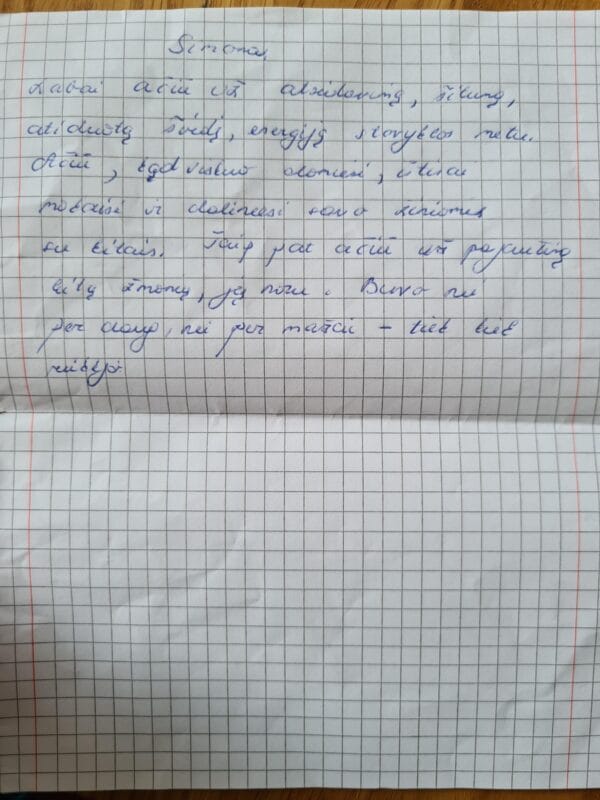 Simona,
Labai ačiū už atsidavimą, šilumą,
atiduotą širdį, energiją stovyklos metu.
Ačiū, kad viskuo domiesi, išties
mokaisi ir dalinuosi savo žiniomis
su kitais. Taip pat ačiū už pajautimą
kitų žmonių, jų norų. Buvo nei
per daug, nei per mažai - tiek kiek
reikėjo